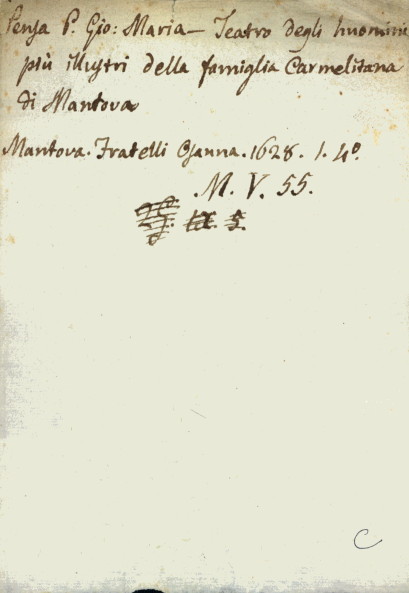 Pensa P. Gio: Maria — Teatro degli huomini
più illustri della famiglia Carmelitana
di Mantova
Mantova. Fratelli Osanna. 1628. 1. 4º.
M. V. 55.
IX. 5.
C